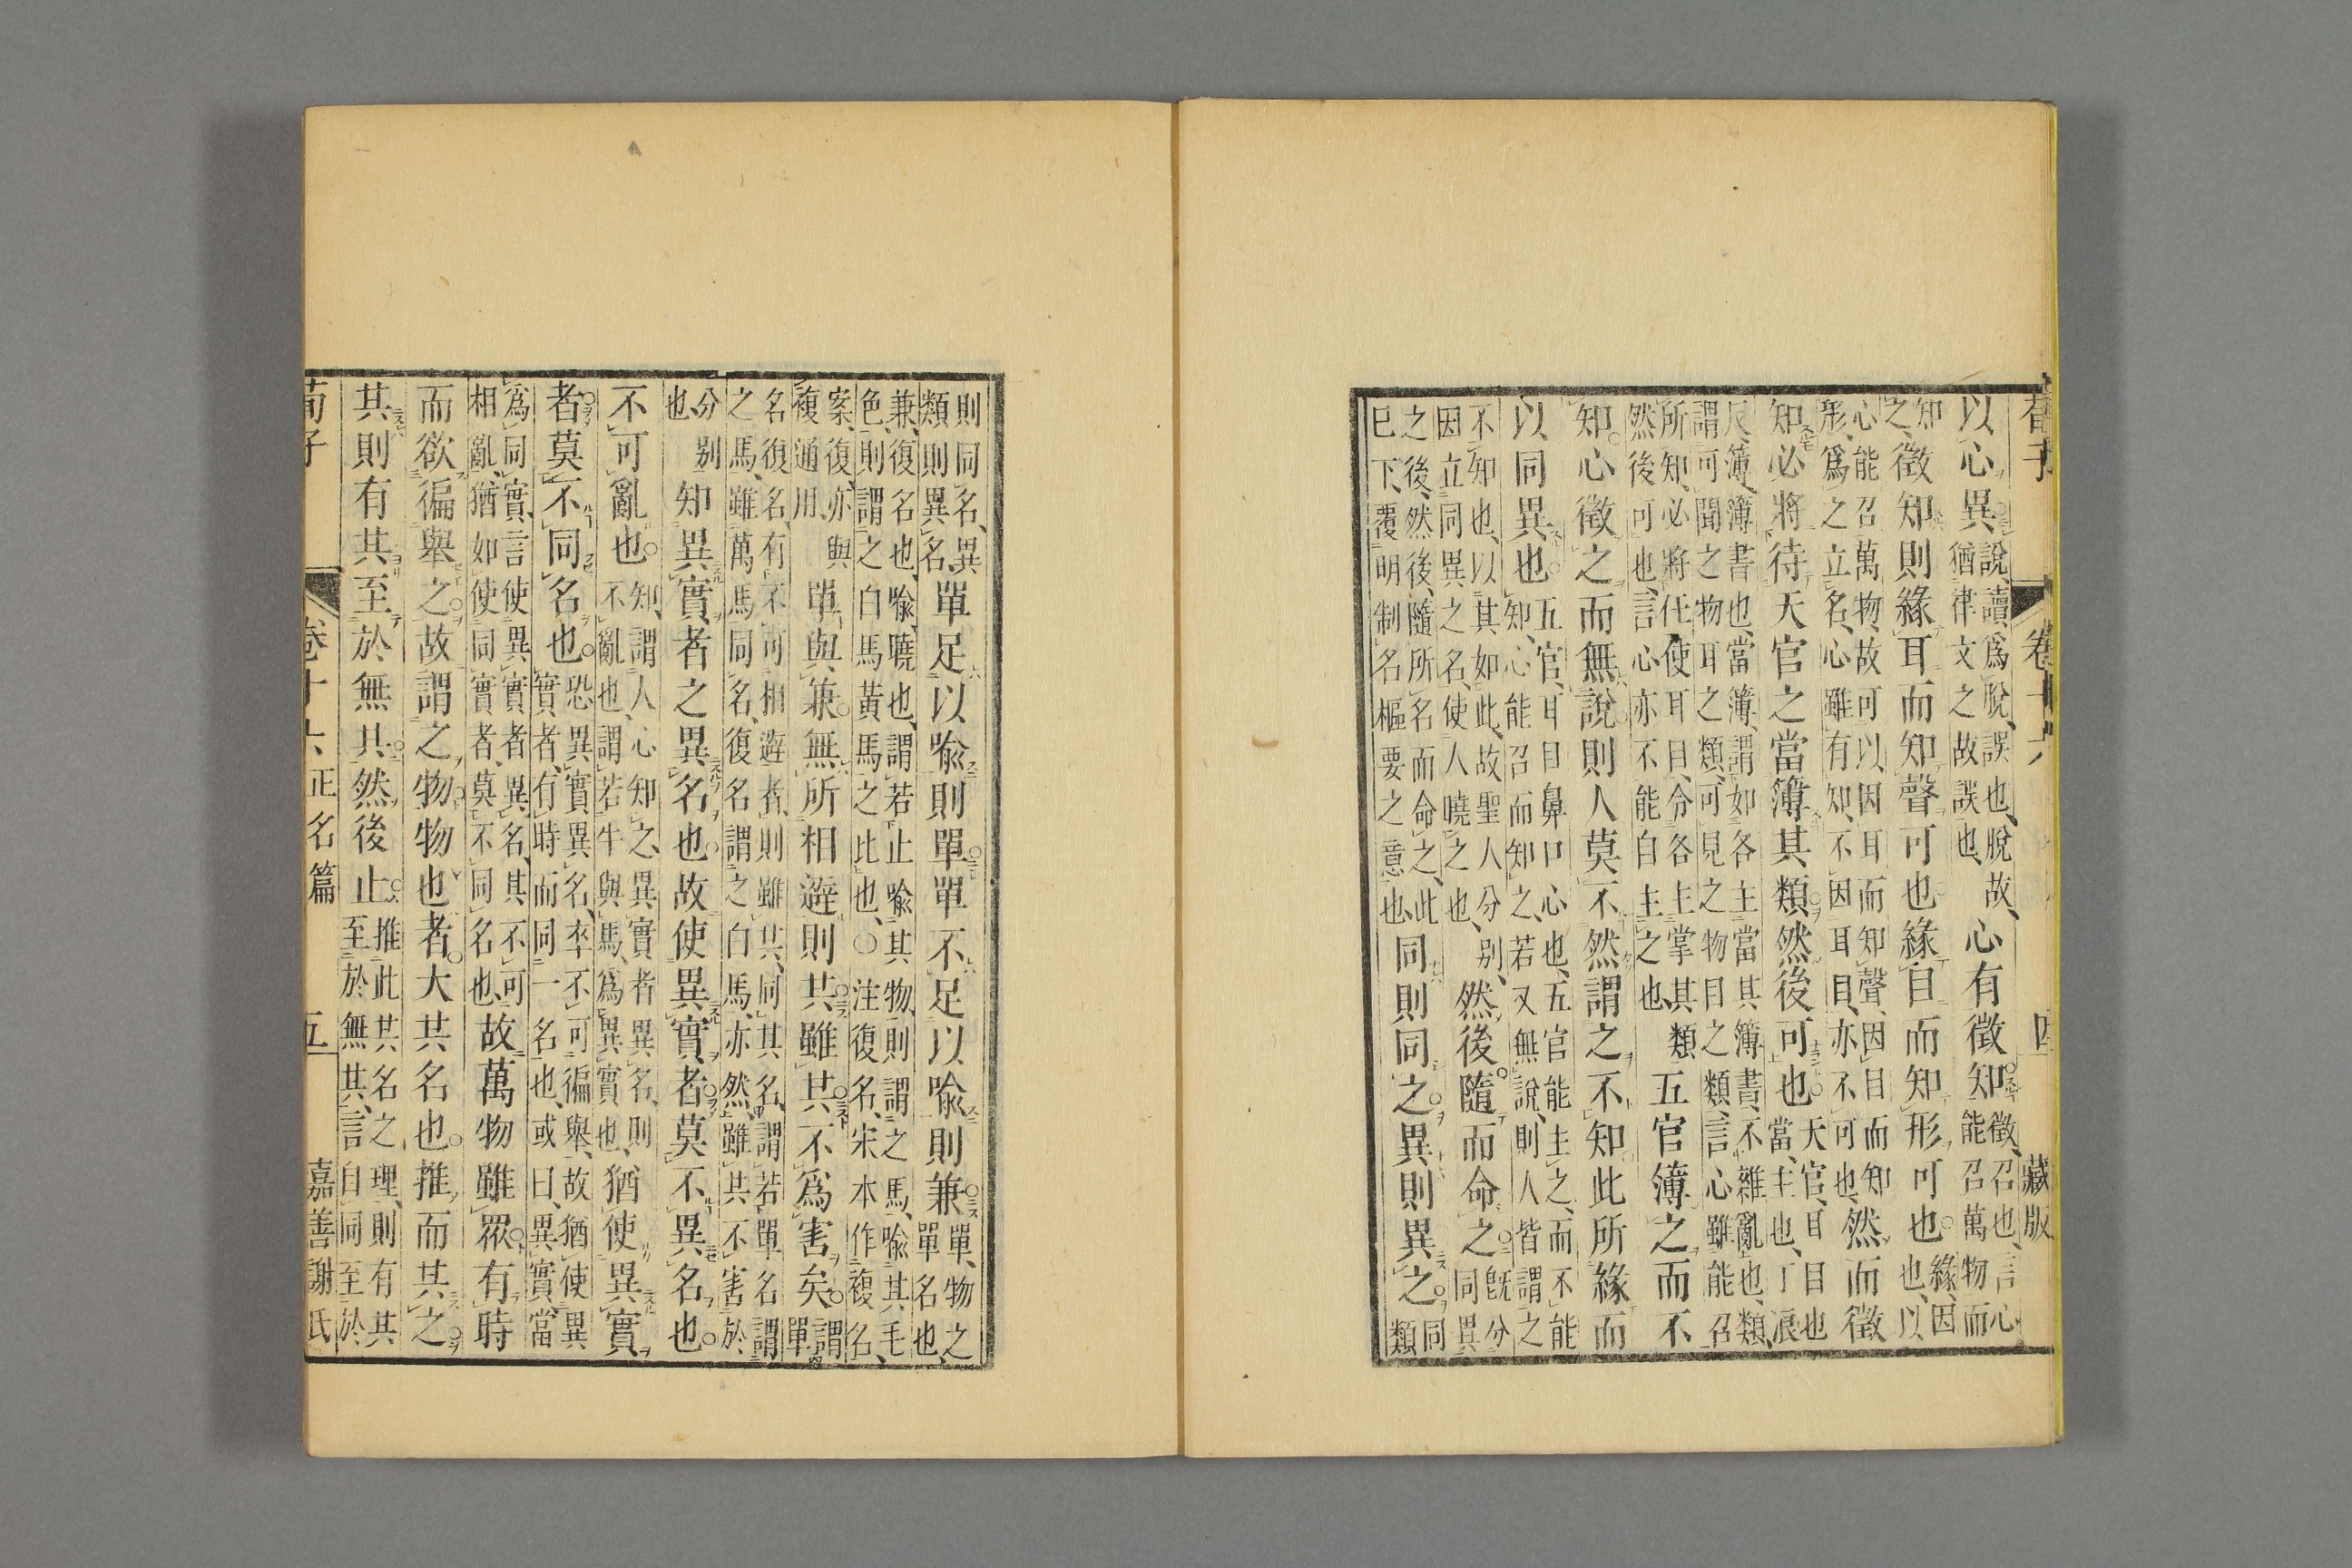 荀子 卷十六 四 藏版
以心異說讀爲脫誤也脫故猶律文之故誤也心有徵知徵召也言心能召萬物而
知之徵知則緣耳而知聲可也緣目而知形可也緣因也以
心能召萬物故可以因耳而知聲因目而知形爲之立名心雖有知不因耳目亦不可也然而徵
知必將待天官之當簿其類然後可也天官耳目也當主也丁浪
反簿簿書也當簿謂如各主當其簿書不雜亂也類謂可聞之物耳之類可見之物目之類言心雖能召
所知必將任使耳目令各主掌其類然後可也言心亦不能自主之也五官簿之而不
知心徵之而無說則人莫不然謂之不知此所緣而
以同異也五官耳目鼻口心也五官能主之而不能知心能召而知之若又無說則人皆謂之
不知也以其如此故聖人分別因立同異之名使人曉之也然後隨而命之既分同異
之後然後隨所名而命之此已下覆明制名樞要之意也同則同之異則異之同類
則同名異類則異名單足以喻則單單不足以喻則兼單物之單名也
兼復名也喻曉也謂若止喻其物則謂之馬喻其毛色則謂之白馬黃馬之比也○注復名宋本作複名
案復亦與複通用單與兼無所相避則共雖共不爲害矣謂單
名復名有不可相避者則雖共同其名謂若單名謂之馬雖萬馬同名復名謂之白馬亦然雖共不害於
分別也知異實者之異名也故使異實者莫不異名也
不可亂也知謂人心知之異實者異名則不亂也謂若牛與馬爲異實也猶使異實
者莫不同名也恐異實異名卒不可徧舉故猶使異實者有時而同一名也或曰異實當
爲同實言使異實者異名其不可相亂猶如使同實者莫不同名也故萬物雖眾有時
而欲徧舉之故謂之物物也者大共名也推而共之
共則有共至於無共然後止推此共名之理則有共至於無共言自同至於
荀子 卷十六 正名篇 五 嘉善謝氏